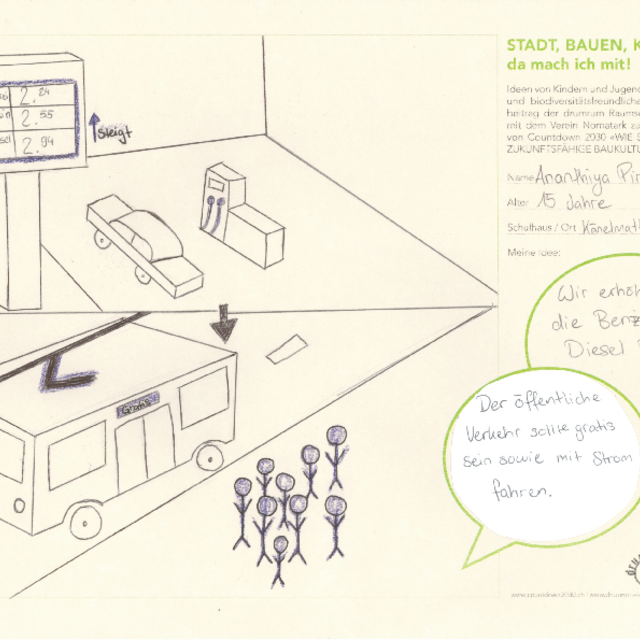 2.84
2.55
2.94
steigt
Gratis
STADT, BAUEN, K
da mach ich mit!
Ideen von Kindern und Jugend
und biodiversitätsfreundliche
beitrag der drumrum Raumsc
mit dem Verein Nomatark zu
von Countdown 2030 «WIE S
ZUKUNFTSFÄHIGE BAUKULTU
Name Ananthiya Pir
Alter 15 Jahre
Schulhaus / Ort Känelmatt
Meine Idee:
Wir erhöh
die Benz
Diesel
Der öffentliche
Verkehr sollte gratis
sein sowie mit Strom
fahren.